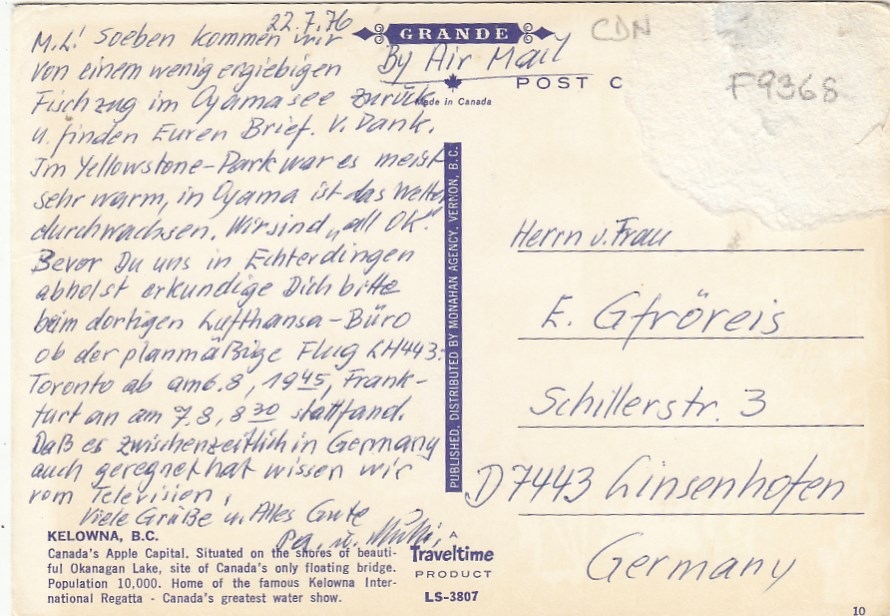 22.7.76
M.L! Soeben kommen wir
von einem wenig ergiebigen
Fischzug im Oyamasee zurück
u. finden Euren Brief. V. Dank.
Im Yellowstone-Park war es meist
sehr warm, in Oyama ist das Wetter
durchwachsen. Wir sind „all OK".
Bevor Du uns in Echterdingen
abholst erkundige Dich bitte
beim dortigen Lufthansa-Büro
ob der planmäßige Flug LH443:
Toronto ab am 6.8, 1945, Frank-
furt an am 7.8, 830 stattfand.
Daß es zwischenzeitlich in Germany
auch geregnet hat wissen wir
vom Television.
Viele Grüße u. Alles Gute
Pa. u.
KELOWNA, B.C.
Canada's Apple Capital. Situated on the shores of beauti-
ful Okanagan Lake, site of Canada's only floating bridge.
Population 10,000. Home of the famous Kelowna Inter-
national Regatta - Canada's greatest water show.
GRANDE
By Air Mail
POST C
Made in Canada
PUBLISHED, DISTRIBUTED BY MONAHAN AGENCY, VERNON, B.C.
A
Traveltime
PRODUCT
LS-3807
CDN
F9368
Herrn u. Frau
E. Gfröreis
Schillerstr. 3
D7443 Linsenhofen
Germany
10